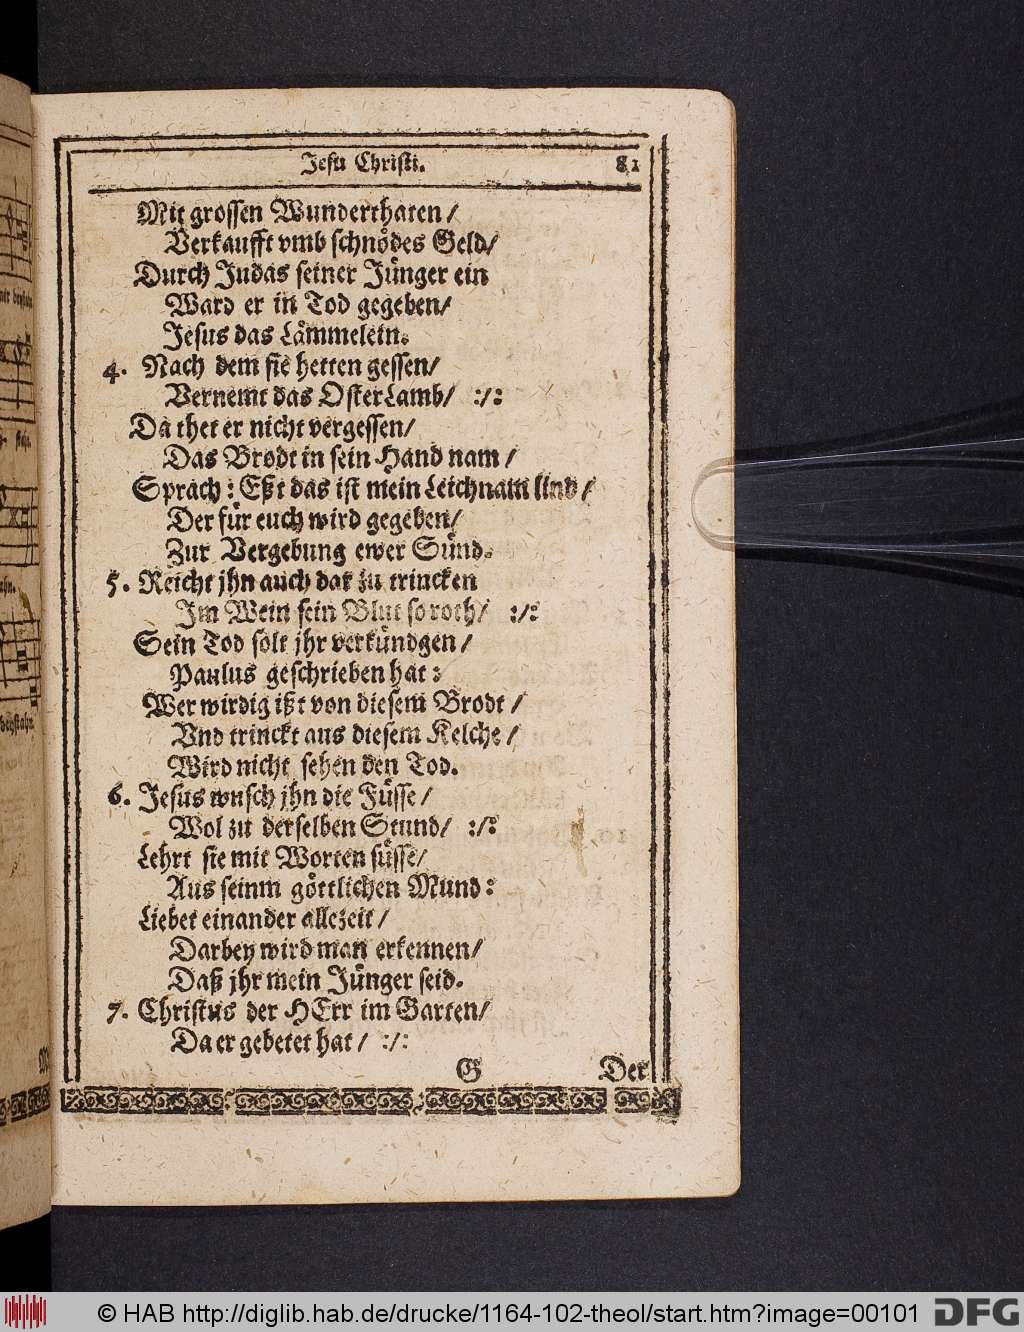 Jesu Christi. 81
Mit grossen Wunderthaten /
Verkaufft vmb schnödes Geld/
Durch Judas seiner Jünger ein
Ward er in Tod gegeben/
Jesus das Lämmelein.
4. Nach dem sie hetten gessen/
Vernemt das OsterLamb/ :/:
Da thet er nicht vergessen/
Das Brodt in sein Hand nam /
Sprach : Eßt das ist mein Leichnam lind /
Der für euch wird gegeben/
Zur Vergebung ewer Sünd.
5. Reicht jhn auch dar zu trincken
Im Wein sein Blut so roth/ :/:
Sein Tod solt jhr verkündgen /
Paulus geschrieben hat :
Wer wirdig ißt von diesem Brodt /
Vnd trinckt aus diesem Kelche /
Wird nicht sehen den Tod.
6. Jesus wusch jhn die Füsse /
Wol zu derselben Stund/ :/:
Lehrt sie mit Worten süsse/
Aus seinm göttlichen Mund :
Liebet einander allezeit /
Darbey wird man erkennen/
Daß jhr mein Jünger seid.
7. Christus der HErr im Garten/
Da er gebetet hat / :/:
G Der
© HAB http://diglib.hab.de/drucke/1164-102-theol/start.htm?image=00101 DFG